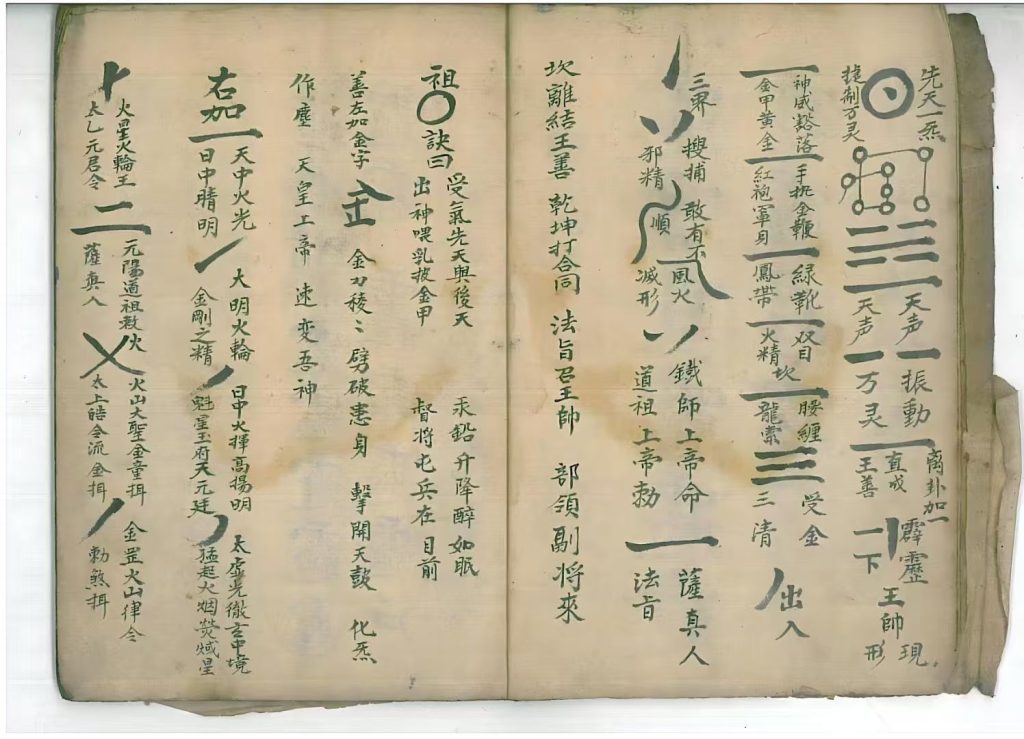 先天一炁
制万灵
天声
天声
振動
万灵
离卦加一
直戍王善
霹靂
一下
王帥
現形
神威豁落
金甲黄金
手执金鞭
紅袍軍身
綠靴
鳳帶
双目
火精坎
腰纏
龍索
受金
三清
出入
三界
邪精
搜捕
敢有不
順
風火
滅形
鐵師上帝命
道祖上帝勅
薩真人
法旨
坎離結王善 乾坤打合同 法旨召王帥 部領副将來
祖
訣曰
受氣先天與後天
出神喂乳披金甲
汞鉛升降醉如眠
督将屯兵在目前
善左如金字 金 金刀稜〻 劈破悪身 擊開天鼓 化炁
作塵 天皇上帝 速变吾神
右加
天中火光
日中晴明
大明火輪
金剛之精
日中火揮高揚明
魁罡玉府天元廷
太虚晃徹玄中境
猛起火烟熒惑星
火星火輪王
太乙元君令
元陽道祖教火
薩真人
火山大聖金童揖
太上皓令流金揖
金罡火山律令
勅煞揖